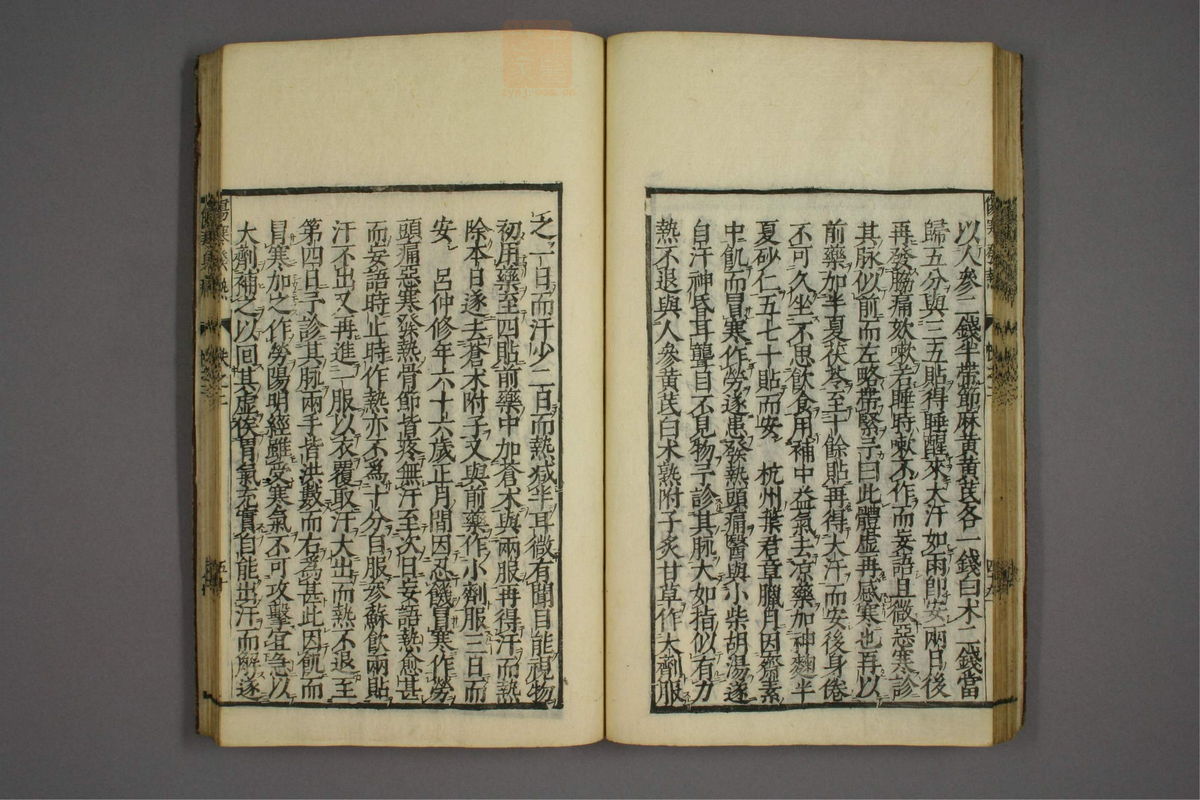 以人參二錢半帶節麻黃黃芪各一錢白术二錢當
歸五分與三五貼得睡醒來大汗如雨即安兩日後
再發脇痛欬嗽若睡時嗽不作而妄語且微惡寒診
其脉似前而左略帶緊予曰此體虛再感寒也再以
前藥加半夏茯苓至十餘貼再得大汗而安後身倦
不可久坐不思飲食用補中益氣去凉藥加神麴半
夏砂仁五七十貼而安 杭州葉君章臘月因齋素
中飢而冒寒作勞遂患發熱頭痛醫與小柴胡湯遂
自汗神昏耳聾目不見物予診其脉大如指似有力
熱不退與人參黃芪白术熟附子炙甘草作大劑服
之一日而汗少二日而熱減半耳微有聞目能視物
初用藥至四貼前藥中加蒼术與兩服再得汗而熱
除本日遂去蒼术附子又與前藥作小劑服三日而
安 呂仲修年六十六歲正月間因忍饑冒寒作勞
頭痛惡寒發熱骨節皆疼無汗至次日妄語熱愈甚
而妄語時止時作熱亦不爲十分自服參蘇飲兩貼
汗不出又再進一服以衣覆取汗大出而熱不退至
第四日予診其脉兩手皆洪數而右爲甚此因飢而
冒寒加之作勞陽明經雖受寒氣不可攻擊宜急以
大劑補之以回其虛俟胃氣充實自能出汗而解遂